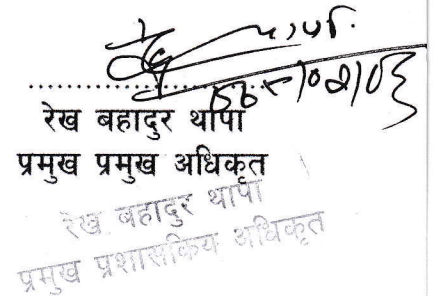 रेख बहादुर थापा
प्रमुख प्रमुख अधिकृत
रेख बहादुर थापा
प्रमुख प्रशासकिय अधिकृत